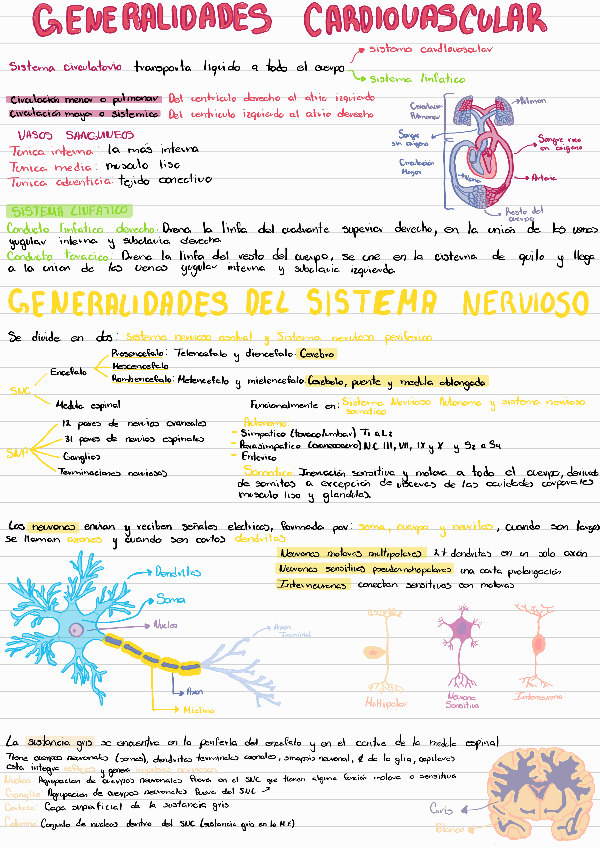 GENERALIDADES CARDIOVASCULAR
sistema cardiovascular
Sistema circulatorio transporta liquido a todo el cuerpo
sistema linfatico
Circulación menor o pulmonar Del ventriculo derecho al atrio izquierdo
Circulación mayor o sistemica Del ventriculo izquierdo al atrio derecho
VASOS SANGUINEOS
Tunica interna: la más interna
Tunica media: musculo liso
Tunica adventicia: tejido conectivo
Circulacion Pulmonar
Pulmon
Sangre sin oxigeno
Sangre rica en oxigeno
Circulación Mayor
Vena
Arteria
Resto del cuerpo
SISTEMA LINFATICO
Conducto linfatico derecho: Drena la linfa del cuadrante superior derecho, en la unión de las venas
yugular interna y subclavia derecha
Conducto toracico: Drena la linfa del resto del cuerpo, se une en la cisterna de quilo y llega
a la union de las venas yugular interna y subclavia izquierda
GENERALIDADES DEL SISTEMA NERVIOSO
Se divide en dos: Sistema nervioso central y Sistema nervioso periferico
Prosencefalo: Telencefalo y diencefalo: Cerebro
Encefalo
Mesencefalo
Rombencefalo: Metencefalo y mielencefalo: Cerebelo, puente y medula oblongada
SNC
Medula espinal
Funcionalmente en: Sistema Nervioso Autonomo y sistema nervioso
somatico
12 pares de nervios craneales
31 pares de nervios espinales
SNP
Ganglios
Terminaciones nerviosas
Autonomo:
- Simpatico (toracolumbar) T1 a L2
- Parasimpatico (craneosacro) NC III, VII, IX y X y S2 a S4
- Enterico
Somatico: Inervación sensitiva y motora a todo el cuerpo, derivado
de somitas a excepción de visceras de las cavidades corporales
musculo liso y glandulas.
Las neuronas envian y reciben señales electricas, formada por: soma, cuerpo y neuritas, cuando son largas
se llaman axones y cuando son cortas dendritas
Neuronas motoras multipolares 2+ dendritas en un solo axon
Neuronas sensitivas pseudomonopolares una corta prolongación
Interneuronas conectan sensitivas con motoras
Dendritas
Soma
Nucleo
Axon Terminal
Axon
Mielina
Multipolar
Neurona Sensitiva
Interneurona
La sustancia gris se encuentra en la periferia del encefalo y en el centro de la medula espinal
Tiene cuerpos neuronales (somas), dendritas terminales axonales, sinapsis neuronal, ¢ de la glia, capilares
Esta integra reflejos y genera
Nucleo: Agrupacion de cuerpos neuronales fuera en el SNC que tienen alguna función motora o sensitiva
Ganglio: Agrupación de cuerpos neuronales fuera del SNC
Corteza: Capa superficial de la sustancia gris
Columna: Conjunto de nucleos dentro del SNC (sustancia gris en la M.E)
Gris
Blanca